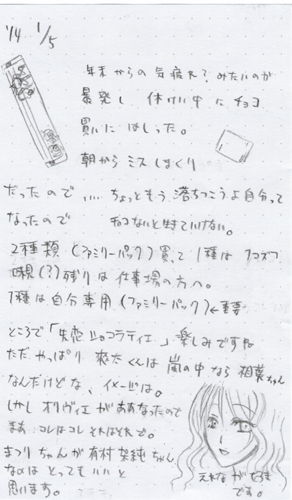 '14 1/5
年末からの気疲れ?みたいのが
暴発し 休けい中にチョコ
買いにはしった。
朝からミスしまくり
だったので…、ちょっともう落ちつこうよ自分って
なったので チョコないと生きていけない。
2種類(ファミリーパック)買って1種は
残りは仕事場の方へ。
1種は自分専用(ファミリーパック)←重要
ところで「失恋ショコラティエ」楽しみですね
ただやっぱり 爽太くんは嵐の中なら相葉ちゃん
なんだけどな、イメージは。
しかしオリヴィエがああなったので
まあ コレはコレ それはそれで。
まつりちゃんが有村架純ちゃん
なのは とってもいいと
思います。
えれなが好き
です。